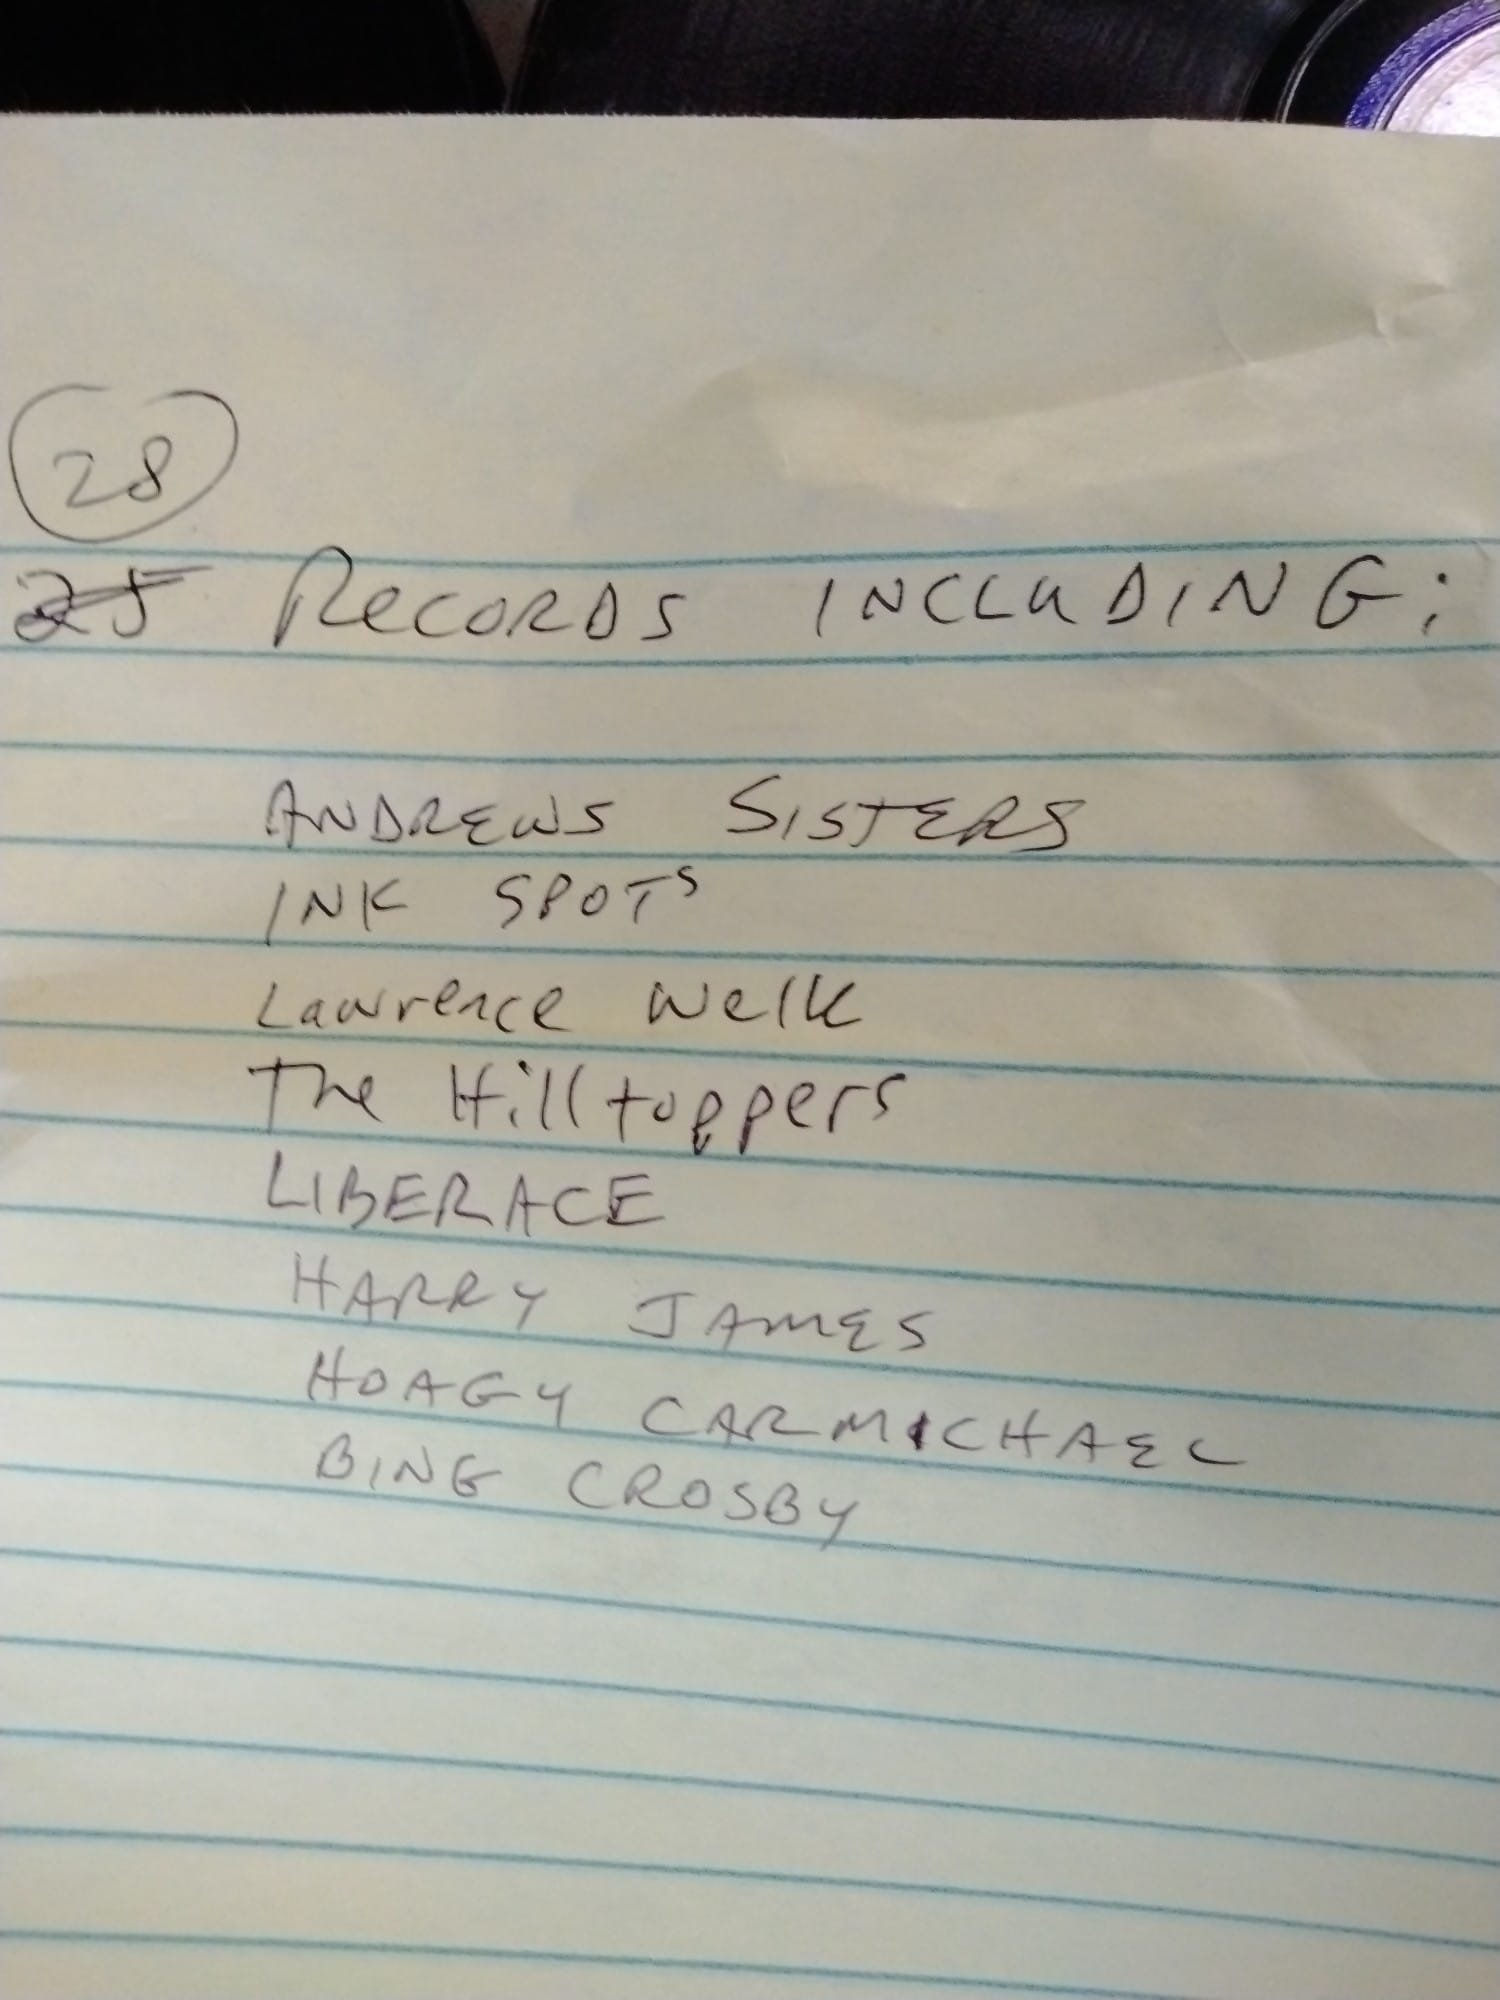 28
25 RECORDS INCLUDING:
ANDREWS SISTERS
INK SPOTS
Lawrence Welk
The Hilltoppers
LIBERACE
HARRY JAMES
HOAGY CARMICHAEL
BING CROSBY